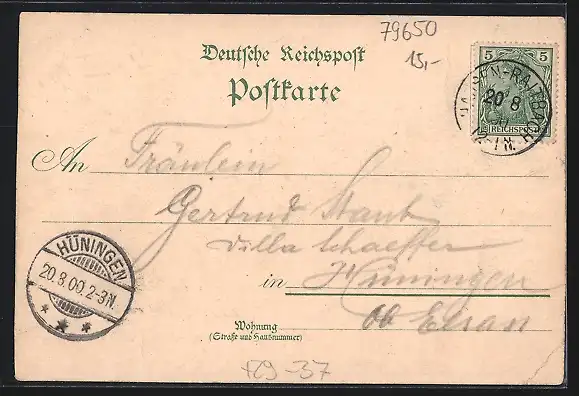 79650
15,-
Deutsche Reichspost
Postkarte
5 5
REICHSPOST
20 8
An Fräulein
Gertrud Staub
Villa Schaeffer
in Hüningen
Ob Elsass
HÜNINGEN
20.8.00.2-3N.
Wohnung
(Straße und Hausnummer)